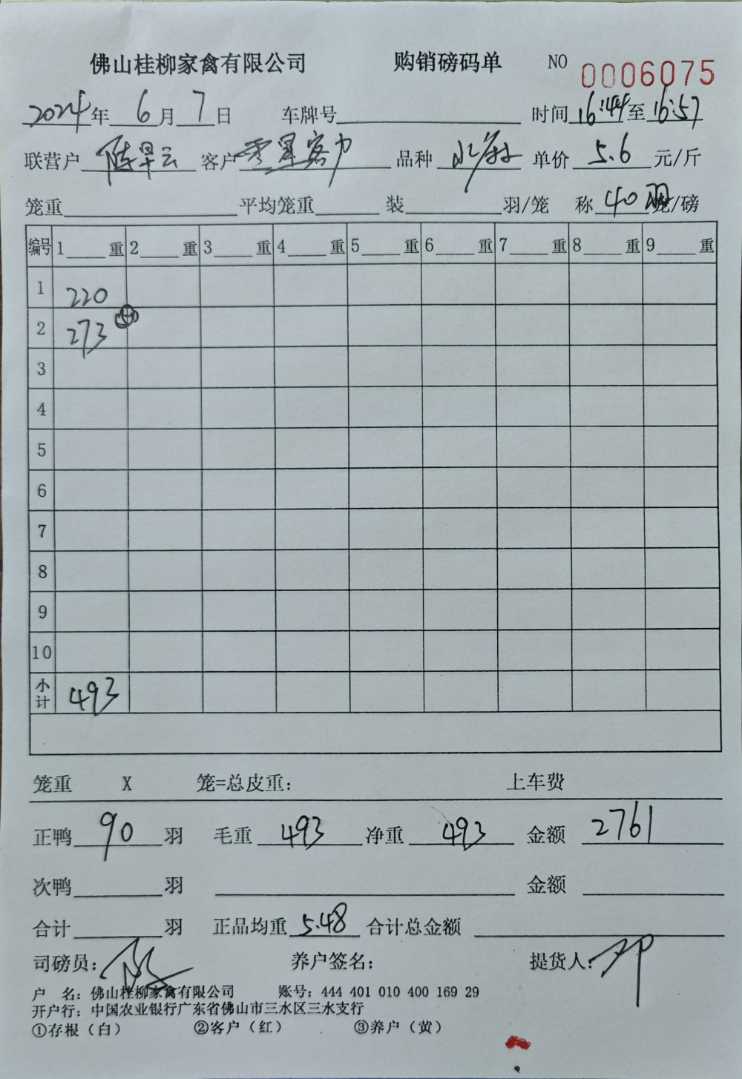 佛山桂柳家禽有限公司 购销磅码单 NO 0006075
2024年6月7日 车牌号 时间16:44至16:57
联营户 陈早云 客户 零星客户 品种 单价 5.6 元/斤
笼重 平均笼重 装 羽/笼 称 40羽 笼/磅
编号 1 重 2 重 3 重 4 重 5 重 6 重 7 重 8 重 9 重
1 220
2 273
3
4
5
6
7
8
9
10
小计 493
笼重 X 笼=总皮重: 上车费
正鸭 90 羽 毛重 493 净重 493 金额 2761
次鸭 羽 金额
合计 羽 正品均重 5.48 合计总金额
司磅员: 养户签名: 提货人:
户 名: 佛山桂柳家禽有限公司 账号: 444 401 010 400 169 29
开户行: 中国农业银行广东省佛山市三水区三水支行
①存根(白) ②客户(红) ③养户(黄)